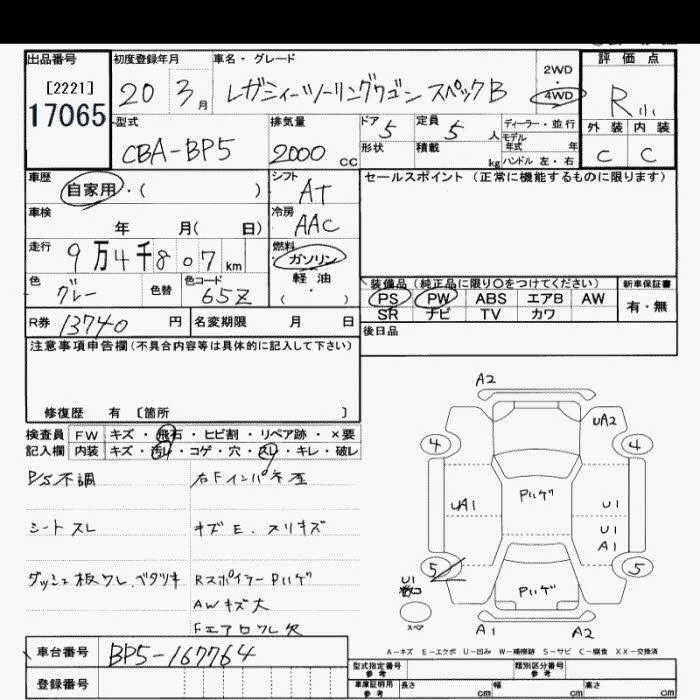 出品番号 初度登録年月 車名・グレード 2WD 評価点
[2221] 20 3月 レガシィーツーリングワゴン スペックB 4WD R
17065 型式 排気量 ドア 定員 ディーラー・並行 外装 内装
CBA-BP5 2000cc 5 5人 モデル年式 年 C C
形状 積載 kg ハンドル 左・右
車歴 シフト セールスポイント(正常に機能するものに限ります)
自家用・( ) AT
車検 冷房
年 月( 日) AAC
走行 燃料
9万4千807km ガソリン
色 色替 色コード 軽油 装備品(純正品に限り○をつけてください) 新車保証書
グレー 65Z ( ・ ) PS PW ABS エアB AW 有・無
SR ナビ TV カワ
R券 13740円 名変期限 月 日 後日品
注意事項申告欄(不具合内容等は具体的に記入して下さい)
修復歴 有 [箇所 ]
検査員 FW キズ・飛石・ヒビ割・リペア跡・×要
記入欄 内装 キズ・汚レ・コゲ・穴・スレ・キレ・破レ
P/S不調 右Fインパネ歪
シートスレ キズE.スリキズ
ダッシュ板ワレ.ベタツキ RスポイラーPハゲ
AWキズ大
Fエアロワレ欠
A2
UA2
4 4
Pハゲ
UA1 U1
U1
A1
5 5
U1
Pハゲ
スペア
A1 A2
A-キズ E-エクボ U-凹み W-補修跡 S-サビ C-腐食 XX-交換済
車台番号 BP5-167764
登録番号
型式指定番号 参考 類別区分番号 参考
車庫証明用 参考 長さ cm 幅 cm 高さ cm